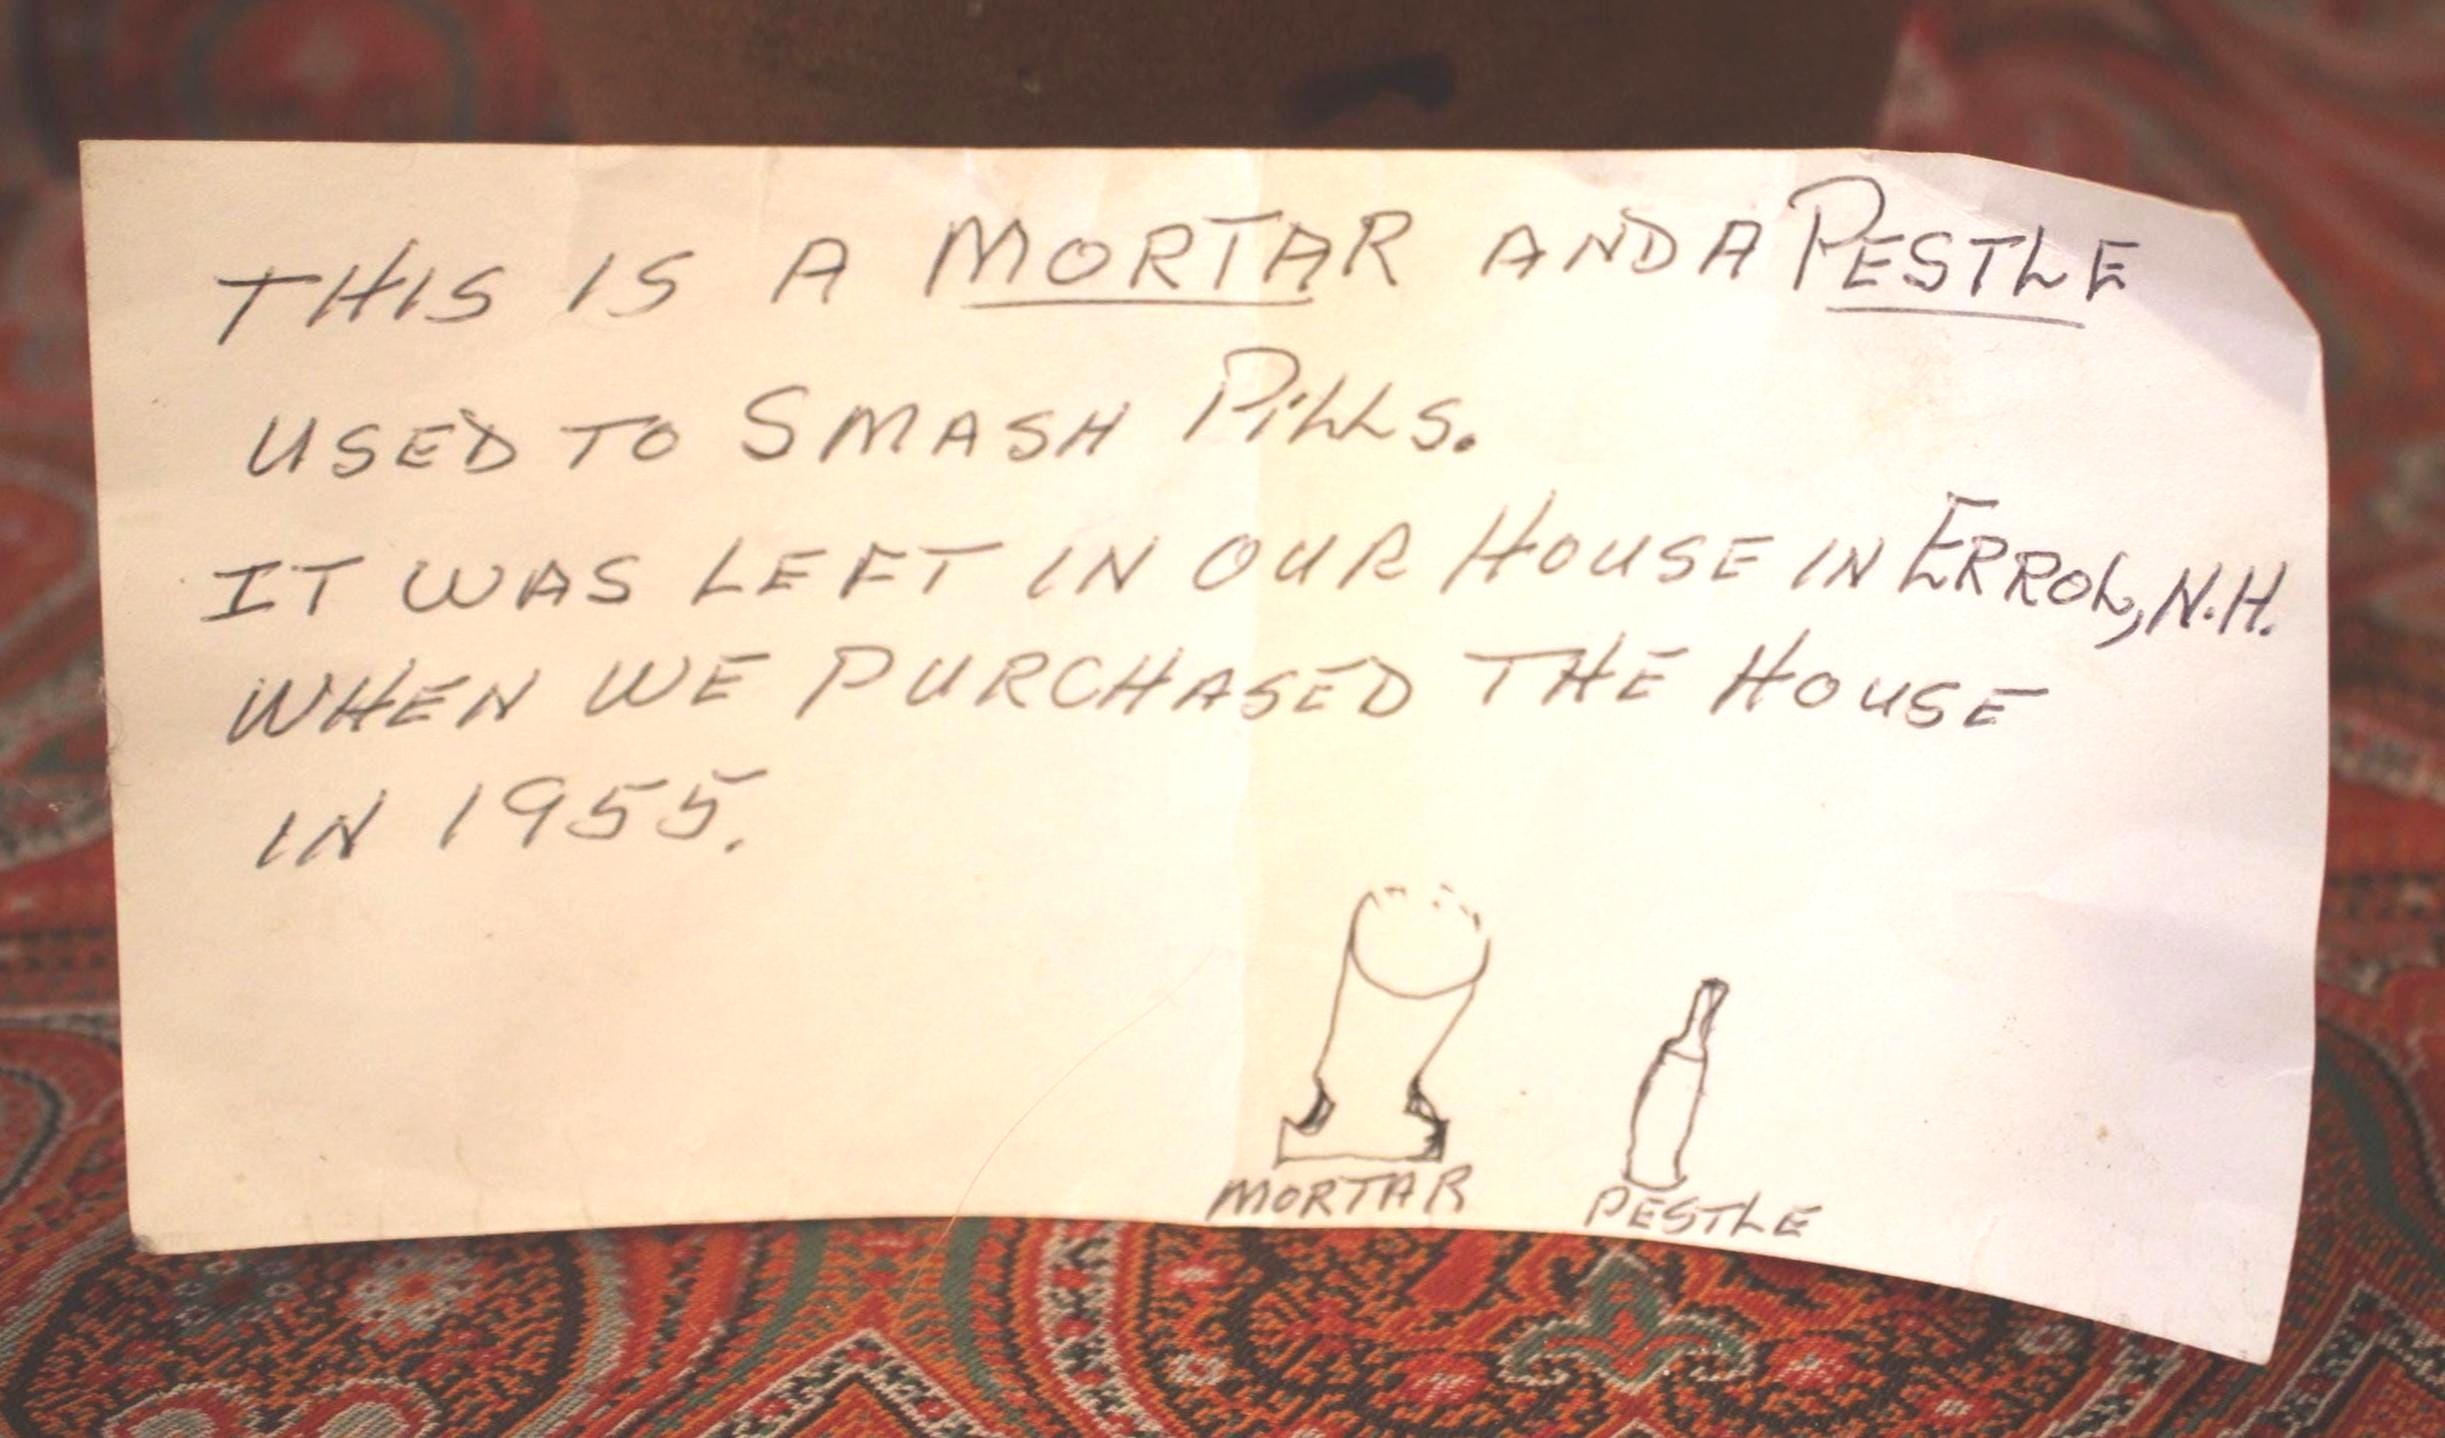 THIS IS A MORTAR AND A PESTLE
USED TO SMASH PILLS.
IT WAS LEFT IN OUR HOUSE IN ERROL, N.H.
WHEN WE PURCHASED THE HOUSE
IN 1955.
MORTAR PESTLE